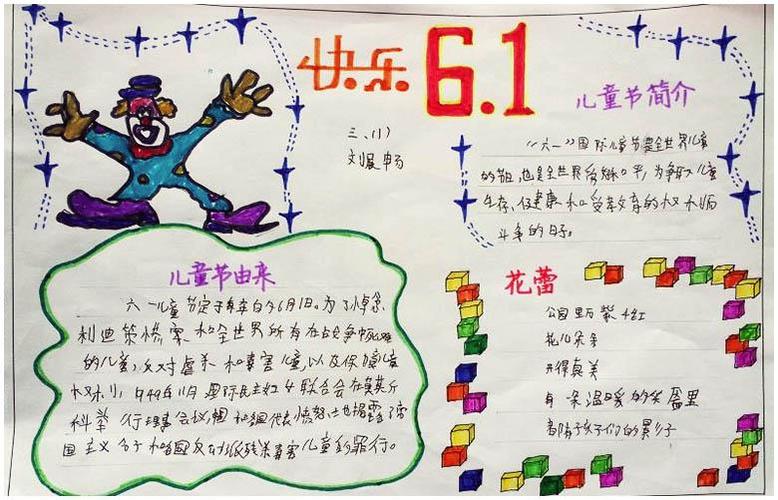 快乐 6.1
三、(1)
刘展畅
儿童节简介
“六一”国际儿童节是全世界儿童
的节日,也是全世界爱好和平,为争取儿童
生存、保健 和受教育的权利而
斗争的日子。
儿童节由来
六一儿童节定于每年的6月1日。为了悼念
利迪策惨案 和全世界所有在战争中死难
的儿童,反对虐杀 和毒害儿童,以及保障儿童
权利,1949年11月 国际民主妇女联合会在莫斯
科举行理事会议,中国和各国代表愤怒地揭露了帝
国主义分子和各国反动派残杀毒害儿童的罪行。
花蕾
公园里万紫千红
花儿朵朵
开得真美
每一朵温暖的笑靥里
都有孩子们的影子